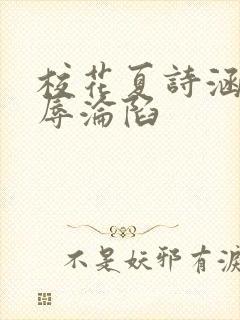 校花夏詩涵
辱淪陷
不是妖邪有淚